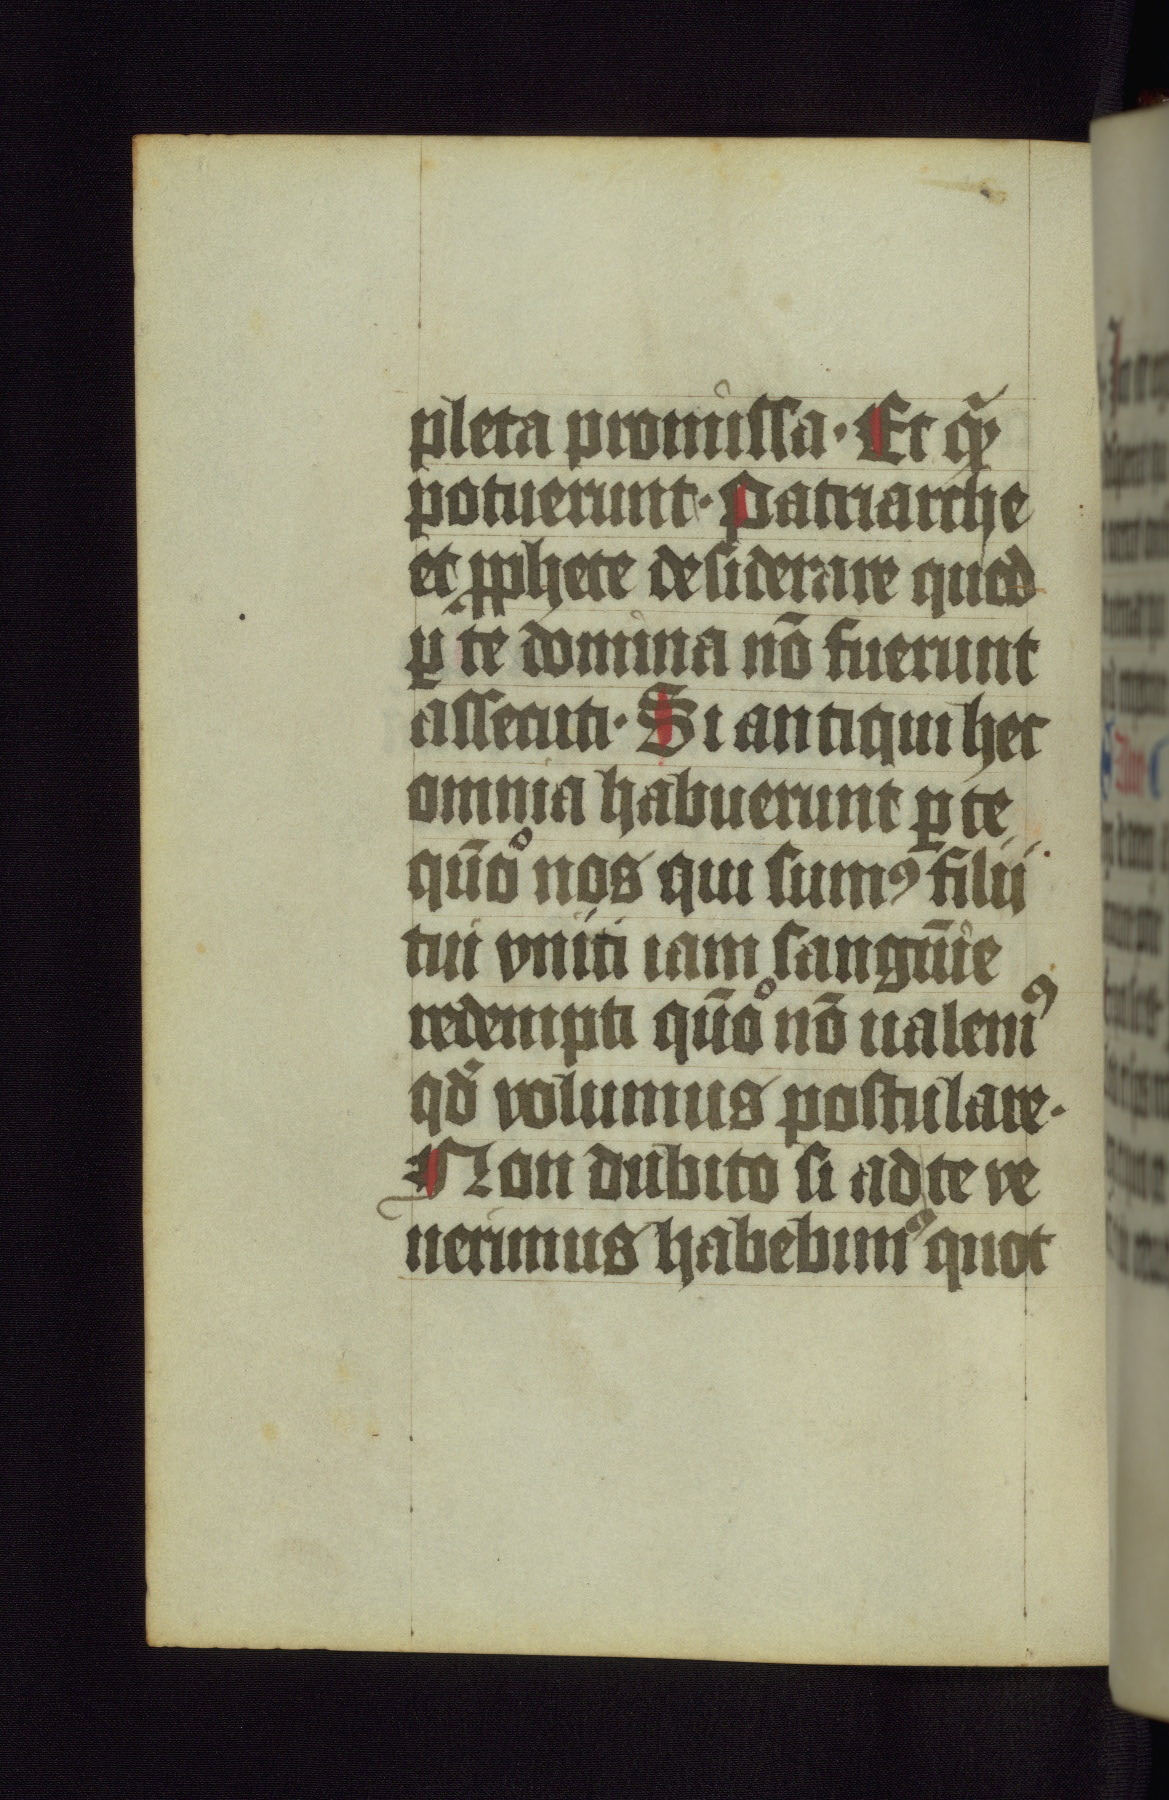 pleta promissa· Et qͣꝫ
potuerunt· Patriarche
et ꝓphete desiderare quod
ꝑ te domina nō fuerunt
assecuti· Si antiqui hec
omnia habuerunt ꝑ te
qūoͦ nos qui sumꝰ filii
tui vniti iam sangūie
redempti qūoͦ nō ualemꝰ
qd̄ volumus postulare·
Non dubito si ad te ve
nerimus habebimꝰ quot